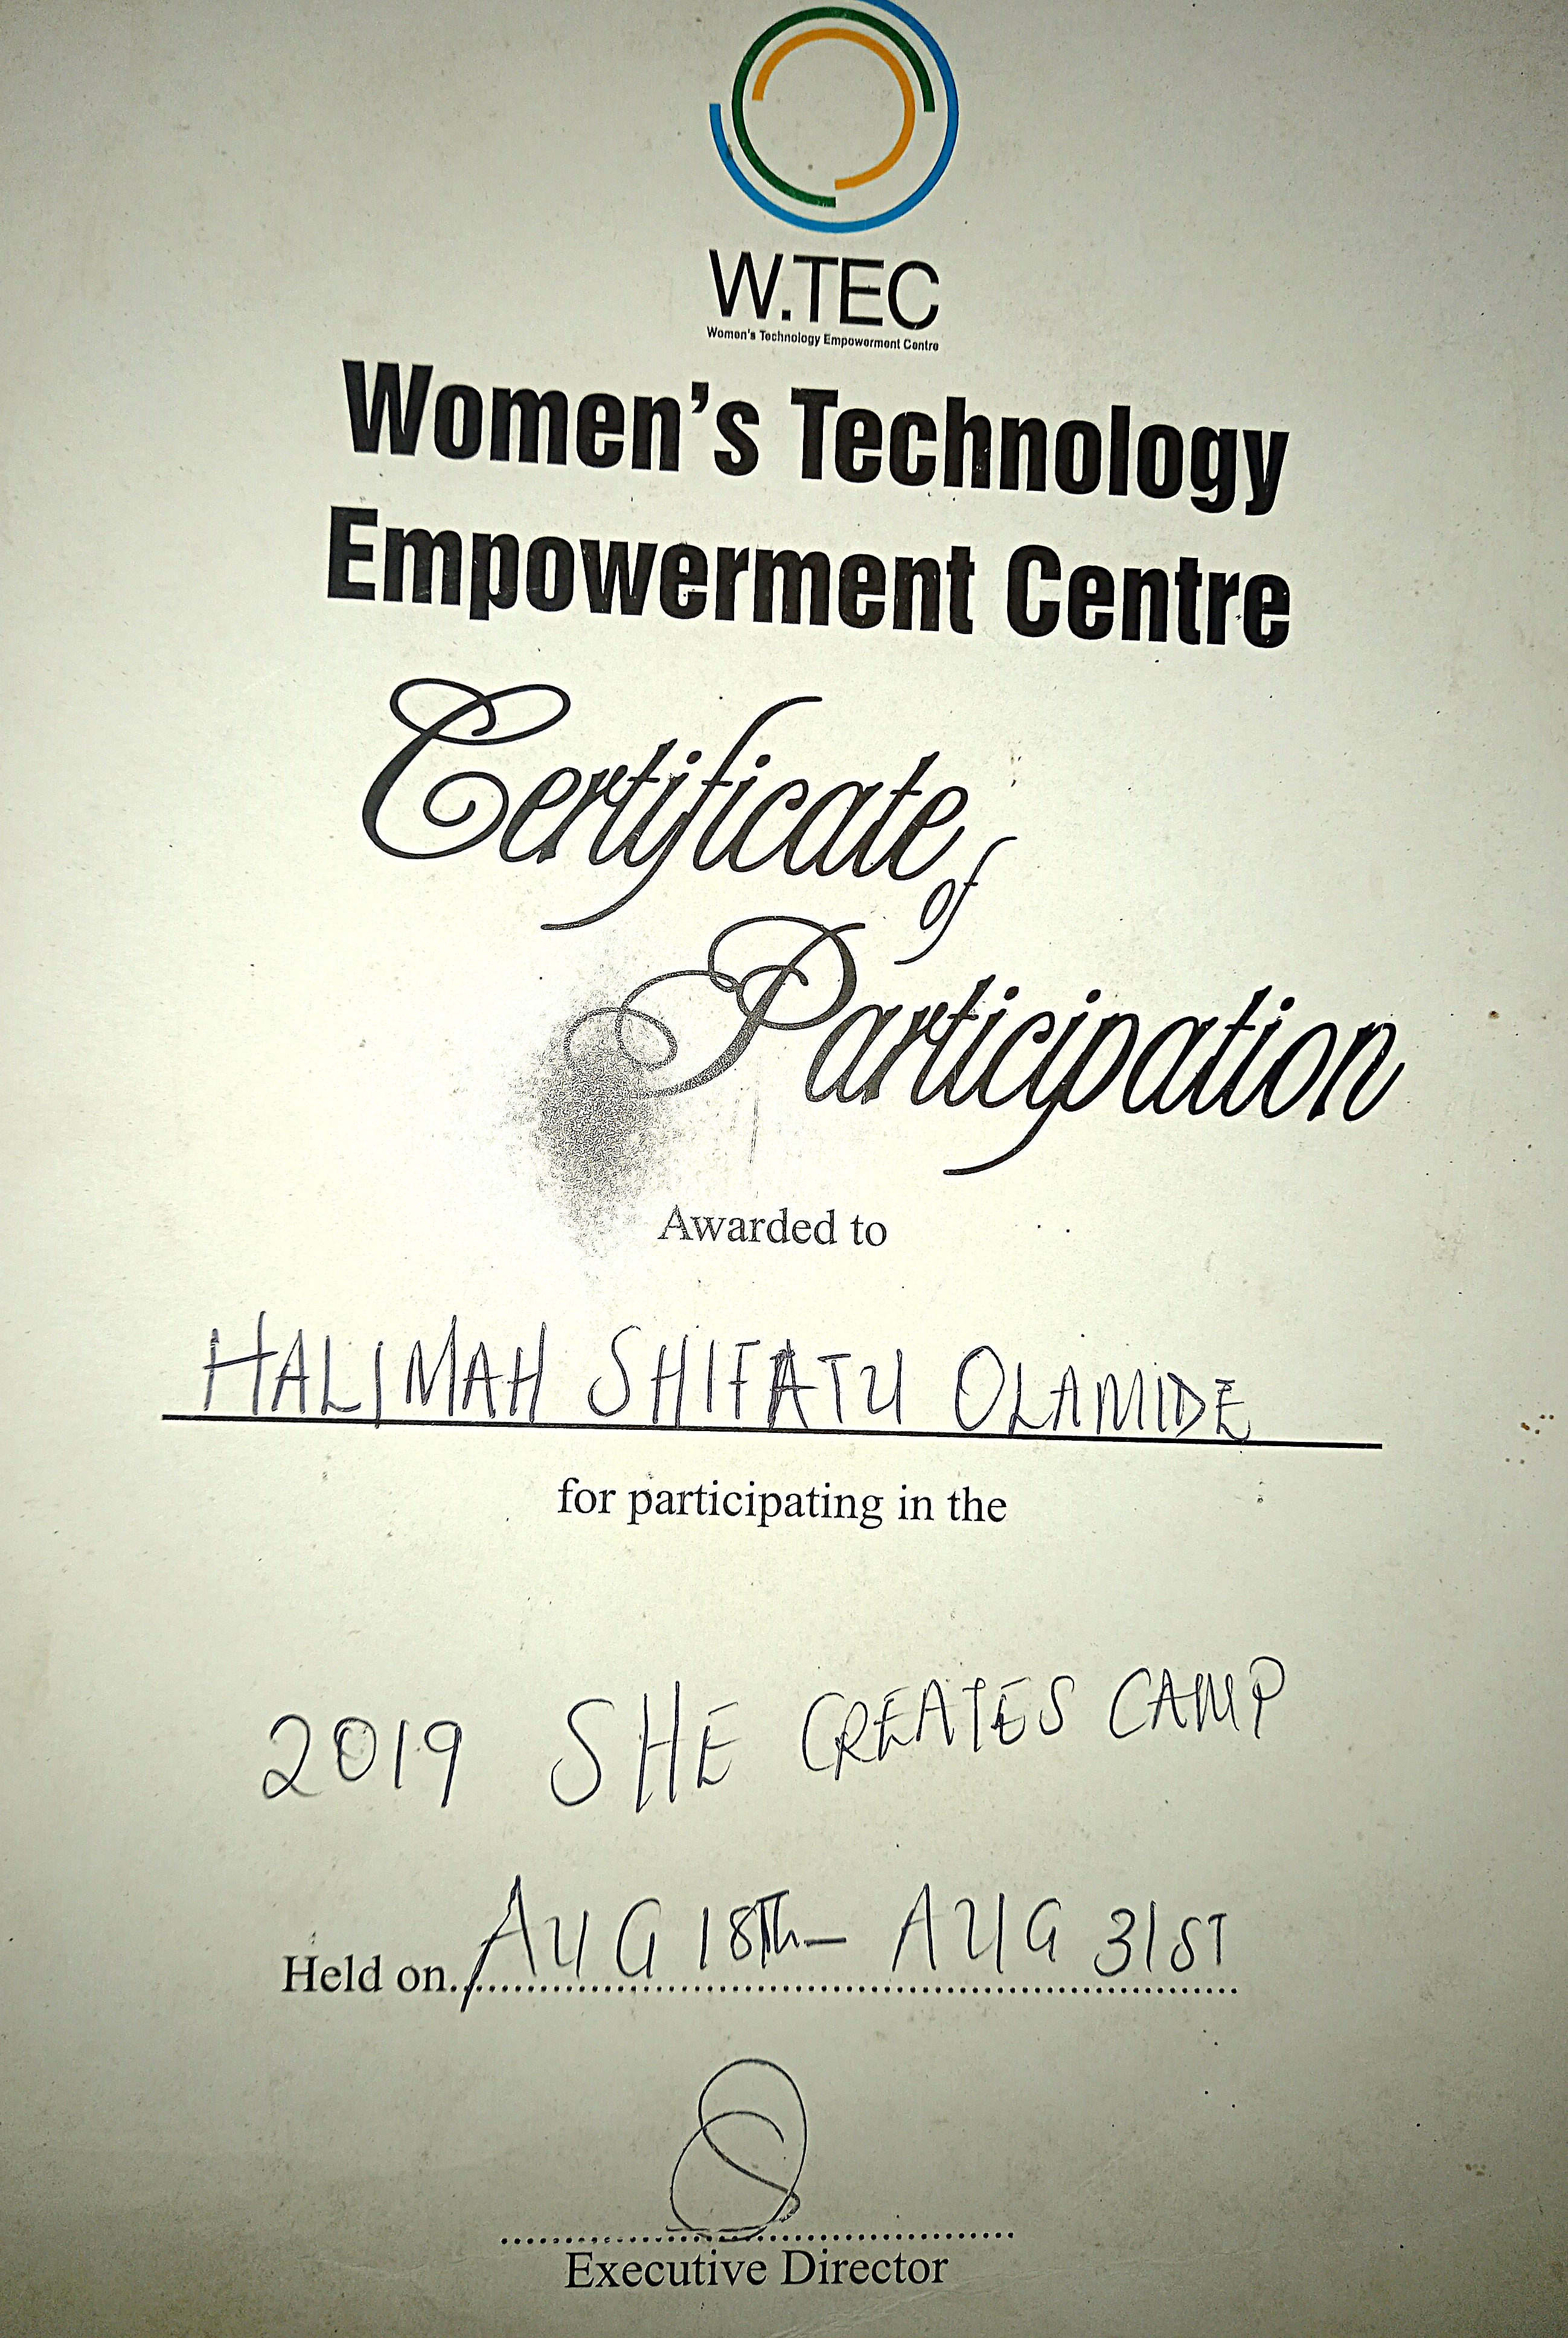 W.TEC
Women's Technology Empowerment Centre
Women's Technology
Empowerment Centre
Certificate
of
Participation
Awarded to
HALIMAH SHIFATU OLAMIDE
for participating in the
2019 SHE CREATES CAMP
Held on AUG 18Th - AUG 31ST
Executive Director